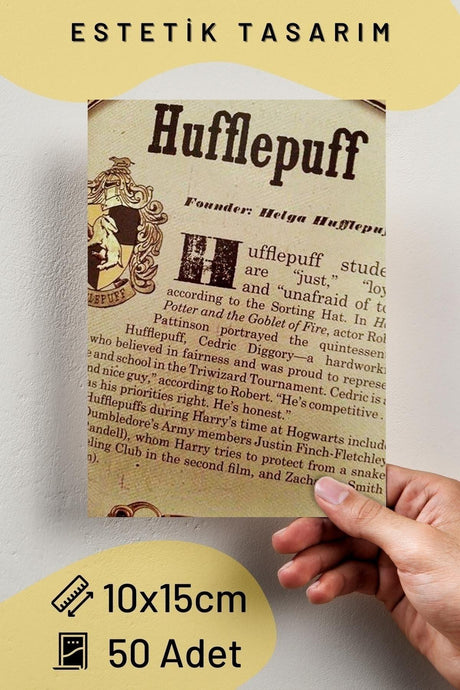 ESTETİK TASARIM
Hufflepuff
Founder: Helga Hufflepu
Hufflepuff stude
are "just," "loy
and "unafraid of to
according to the Sorting Hat. In Ha
Potter and the Goblet of Fire, actor Rob
Pattinson portrayed the quintessen
Hufflepuff, Cedric Diggory—a hardworki
who believed in fairness and was proud to represe
e and school in the Triwizard Tournament. Cedric is a
nd nice guy," according to Robert. "He's competitive
as his priorities right. He's honest."
Hufflepuffs during Harry's time at Hogwarts include
Dumbledore's Army members Justin Finch-Fletchley
andell), whom Harry tries to protect from a snake
eling Club in the second film, and Zach Smith
n).
LEPUFF
10x15cm
50 Adet